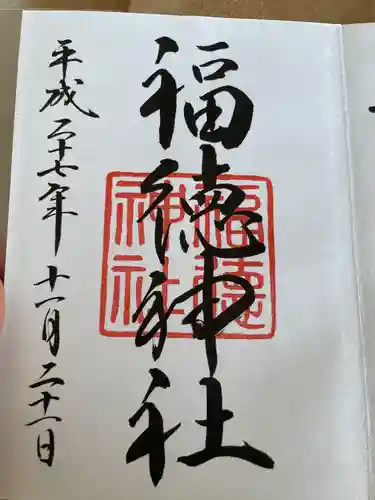 福徳神社
福徳神社
平成二十七年 十一月二十一日